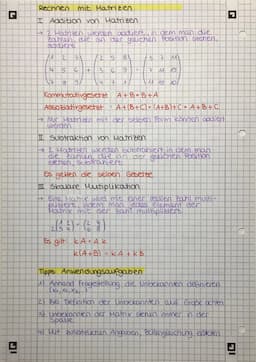 Rechnen mit Matrizen
I Addition von Matrizen
→ 2 Matrizen werden addiert, in dem man die
Zahlen, die an der gleichen Position stehen,
addiert
Kommutativgesetz: A+B=B+A
Assoziativgesetz: A+(B+C)=(A+B)+C=A+B+C
→ Nur Matrizen mit der selben Form können addiert
werden
II Subtraktion von Matrizen
→ 2 Matrizen werden subtrahiert, in dem man
die Zahlen, die an der gleichen Position
stehen, subtrahiert
Es gelten die selben Gesetze
III Skalare Multiplikation
→ Eine Matrix wird mit einer reellen Zahl multi-
pliziert, indem man jedes Element der
Matrix mit der Zahl multipliziert
Es gilt: k·A=A·k
k(A+B)=k·A+k·B
Tipps Anwendungsaufgaben
1) Anhand Fragestellung die Unbekannten definieren
2) Bei Definition der Unbekannten auf Größe achten
3) Unbekannten der Matrix stehen immer in der
Spalte
4) Mit bekannten Angaben, Bulliengleichung